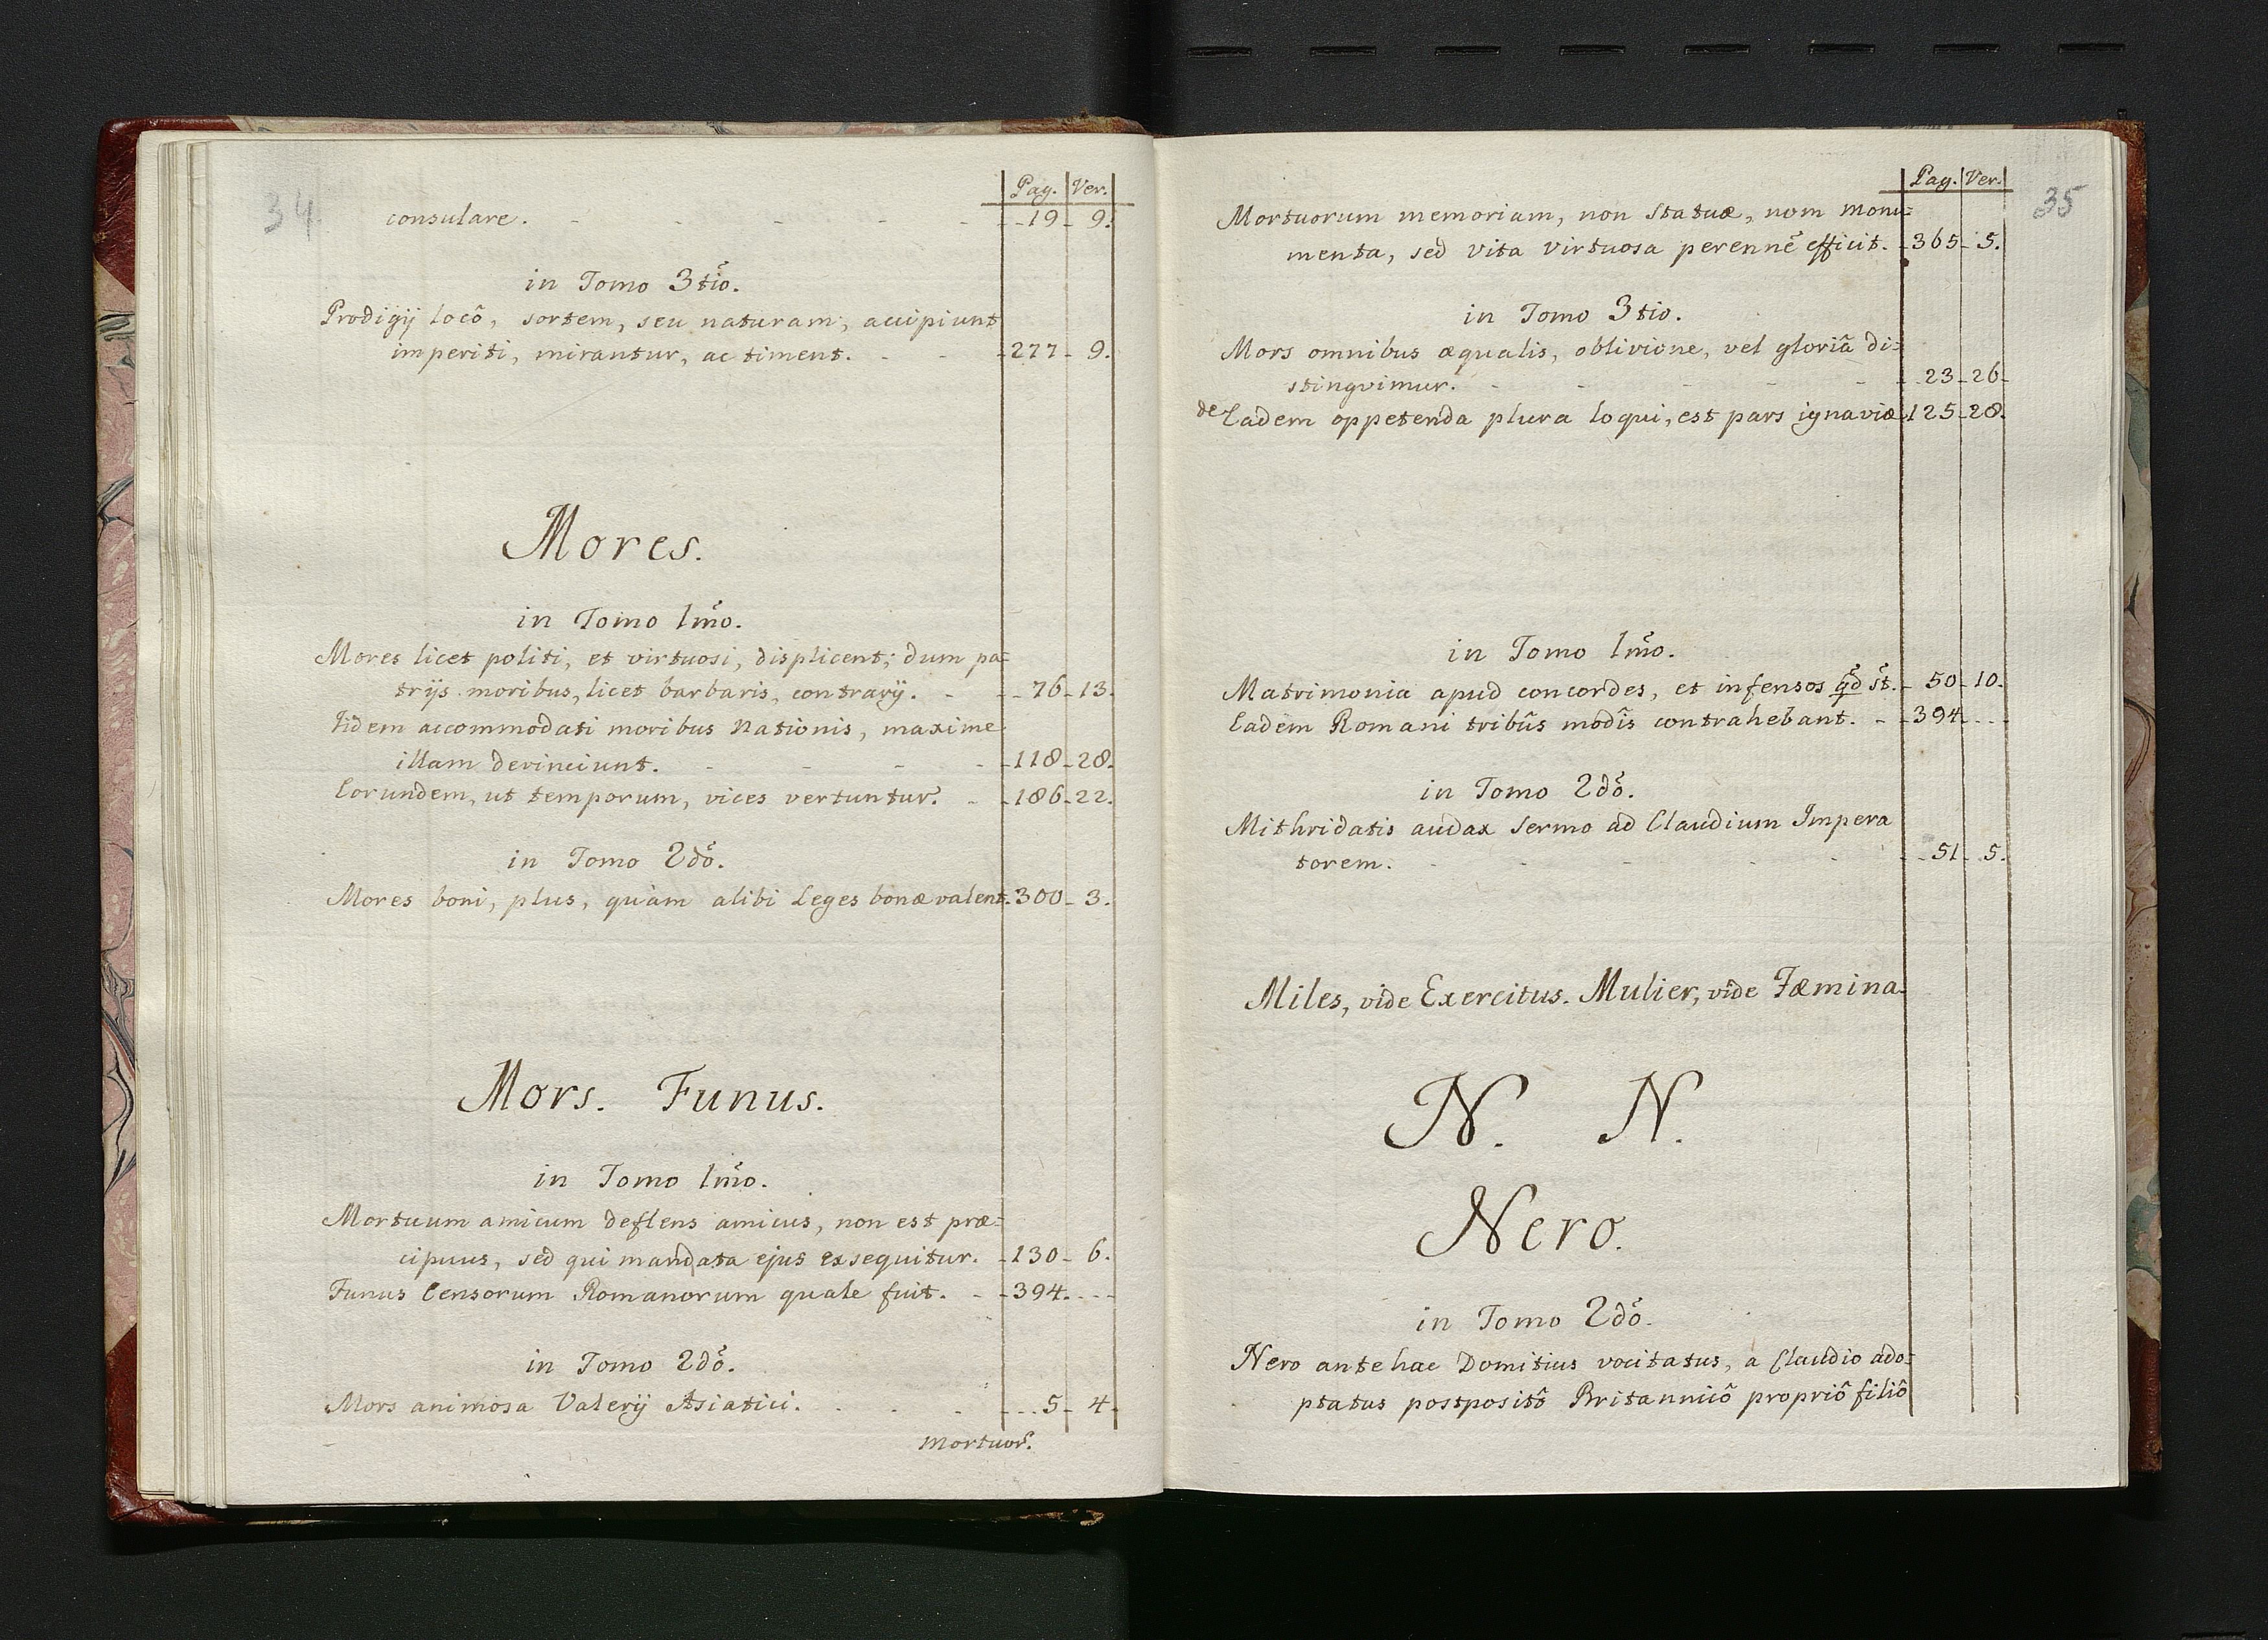 34.
Pag. Ver.
consulare. - - - - - 19 - 9.
in Tomo 3tio.
Prodigij locô, sortem, seu naturam, accipiunt
imperiti, mirantur, ac timent. - - 277 - 9.
Mores.
in Tomo 1mo.
Mores licet politi, et virtuosi, displicent; dum pa=
trijs moribus, licet barbaris, contrarij. - 76 - 13.
Iidem accommodati moribus Nationis, maxime
illam devinciunt. - - - - 118 - 28.
Eorundem, ut temporum, vices vertuntur. - 186 - 22.
in Tomo 2do.
Mores boni, plus, quàm alibi Leges bonæ valent. 300 - 3.
Mors. Funus.
in Tomo 1mo.
Mortuum amicum deflens amicus, non est præ=
cipuus, sed qui mandata ejus exsequitur. - 130 - 6.
Funus Censorum Romanorum quale fuit. - 394. - - -
in Tomo 2do.
Mors animosa Valerij Asiatici. - - - 5 - 4.
Mortuor.
35
Pag. Ver.
Mortuorum memoriam, non Statuæ, nom monu=
menta, sed vita virtuosa perennē efficit. - 365 - 5.
in Tomo 3tio.
Mors omnibus æqualis, oblivione, vel gloriâ di=
stingvimur. - - - - - 23 - 26.
de Eadem oppetenda plura loqui, est pars ignaviæ 125 - 28.
in Tomo 1mo.
Matrimonia apud concordes, et infensos qd st. - 50 - 10.
Eadem Romani tribûs modîs contrahebant. - 394. - - -
in Tomo 2do.
Mithridatis audax sermo ad Claudium Impera
torem. - - - - - 51 - 5.
Miles, vide Exercitus. Mulier, vide Fæmina.
N. N.
Nero.
in Tomo 2do.
Nero antehac Domitius vocitatus, a Claudio ado=
ptatus postpositô Britannicô propriô filiô